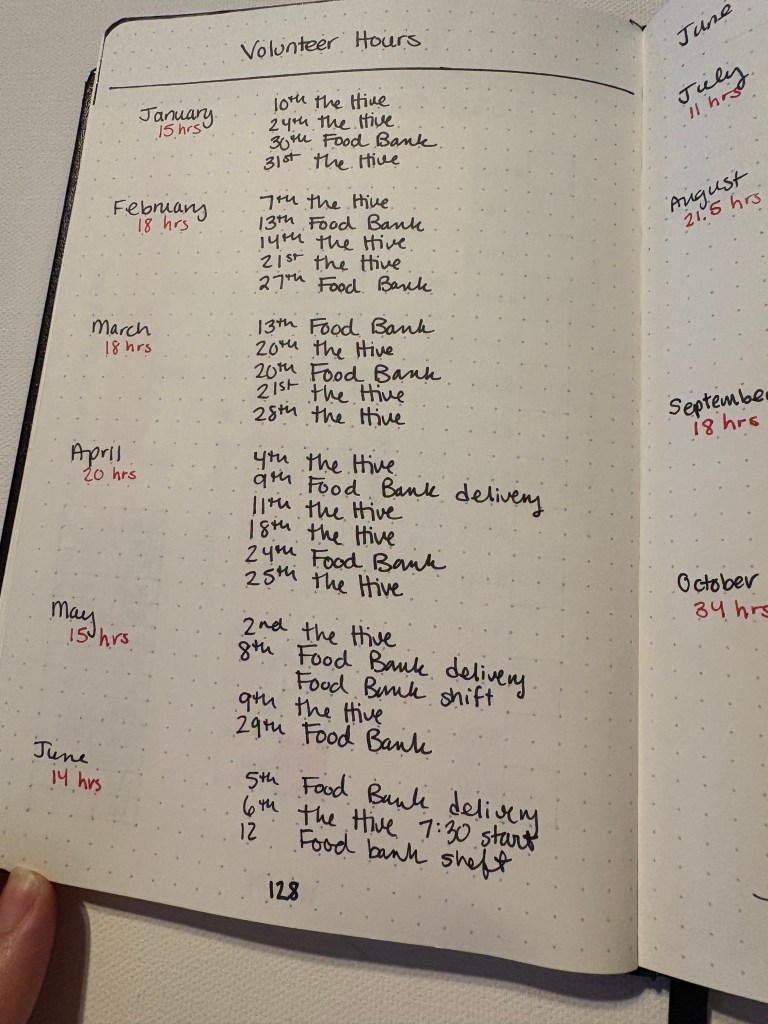 Volunteer Hours
January
15 hrs
10th the Hive
24th the Hive
30th Food Bank
31st the Hive
February
18 hrs
7th the Hive
13th Food Bank
14th the Hive
21st the Hive
27th Food Bank
March
18 hrs
13th Food Bank
20th the Hive
20th Food Bank
21st the Hive
28th the Hive
April
20 hrs
4th the Hive
9th Food Bank delivery
11th the Hive
18th the Hive
24th Food Bank
25th the Hive
May
15 hrs
2nd the Hive
8th Food Bank delivery
Food Bank shift
9th the Hive
29th Food Bank
June
14 hrs
5th Food Bank delivery
6th the Hive 7:30 start
12 Food bank sheft
128
June
July
11 hrs
August
21.5 hrs
September
18 hrs
October
34 hrs